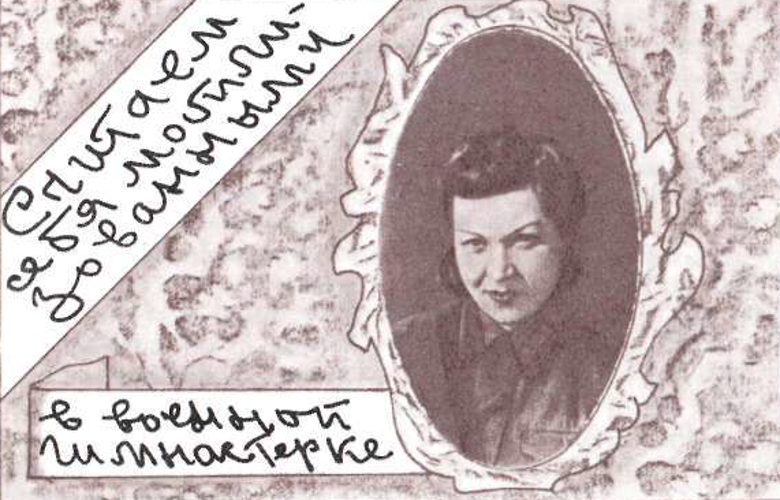 Считаем
себя мобили-
зованными
в военной
гимнастерке